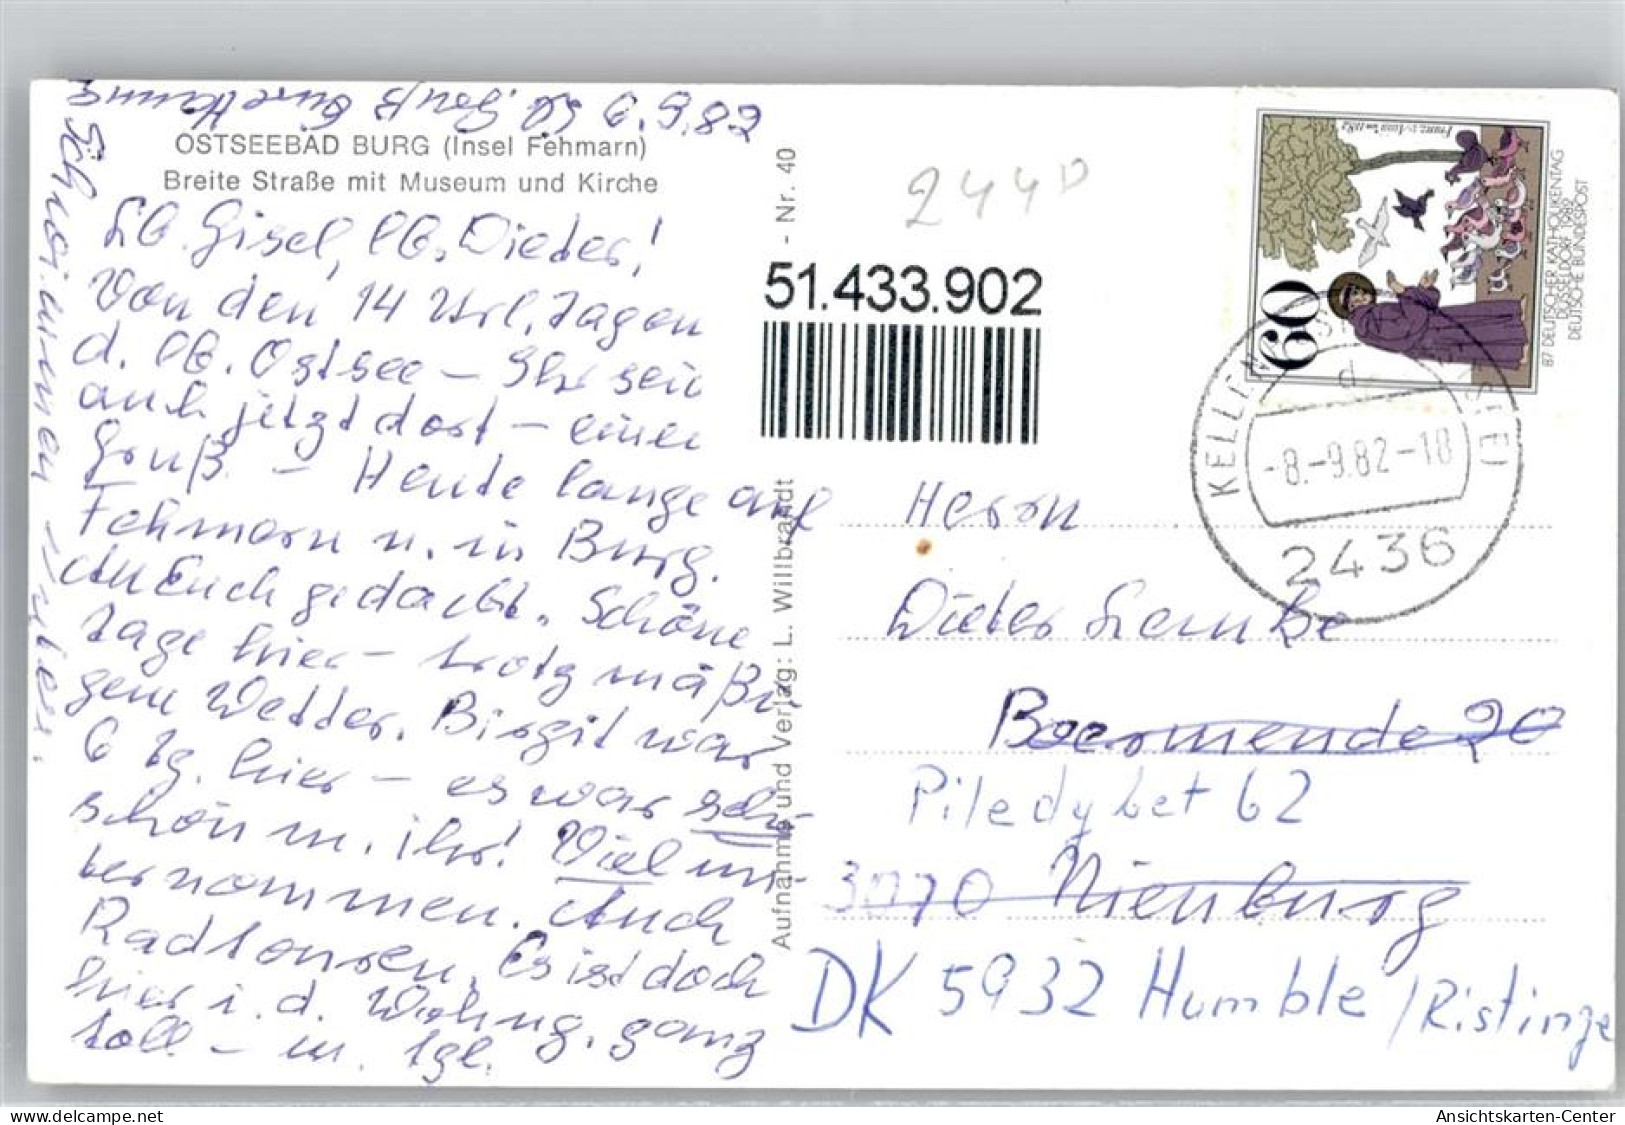 OSTSEEBAD BURG (Insel Fehmarn)
Breite Straße mit Museum und Kirche
Lb. Gisel, lb. Dieter!
Von den 14 Url. Tagen
d. lb. Ostsee – Ihr seid
auch jetzt dort – einen
Gruß. – Heute lange auf
Fehmarn u. in Burg.
An Euch gedacht. Schöne
Tage hier – trotz mäßi-
gem Wetter. Birgit war
6 Tg. hier – es war sehr
schön m. ihr! Viel un-
ternommen. Auch
Radtouren. Es ist doch
hier i. d. Wohng. ganz
toll – m. tgl.
Schwimmen
6.9.82
Aufnahme und Verlag: L. Willbrandt - Nr. 40
244D
51.433.902
60
Franz v. Assisi um 1182
87. DEUTSCHER KATHOLIKENTAG
DÜSSELDORF 1982
DEUTSCHE BUNDESPOST
-8.-9.82-18
2436
Herrn
Dieter Lemke
Boermende 20
Piledybet 62
3070 Nienburg
DK 5932 Humble / Ristinge
Ansichtskarten-Center